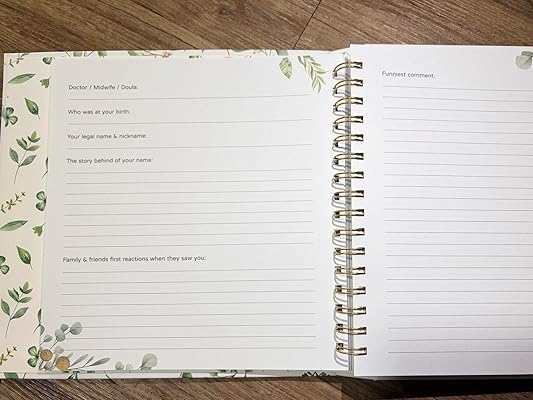 Doctor / Midwife / Doula:
Who was at your birth:
Your legal name & nickname:
The story behind of your name:
Family & friends first reactions when they saw you:
Funniest comment: